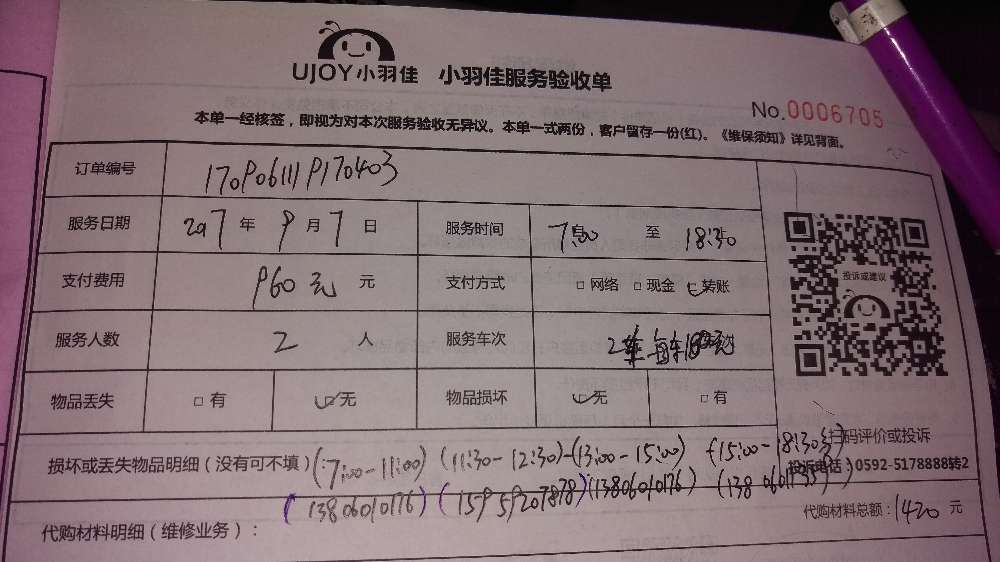 UJOY小羽佳 小羽佳服务验收单
No.0006705
本单一经核签，即视为对本次服务验收无异议。本单一式两份，客户留存一份(红)。《维保须知》详见背面。
订单编号 170P06111P170403
服务日期 2017 年 9 月 7 日 服务时间 7:00 至 18:30
支付费用 960元 元 支付方式 □网络 □现金 □转账
投诉或建议
服务人数 2 人 服务车次 2车 每车
物品丢失 □有 □无 物品损坏 □无 □有
扫码评价或投诉
损坏或丢失物品明细（没有可不填） (7:00-11:00) (11:30-12:30)-(13:00-15:00) (15:00-18:30)
投诉电话：0592-5178888转2
(13806010176) (15959207878) (13806010176)
代购材料明细（维修业务）： 代购材料总额：1420 元